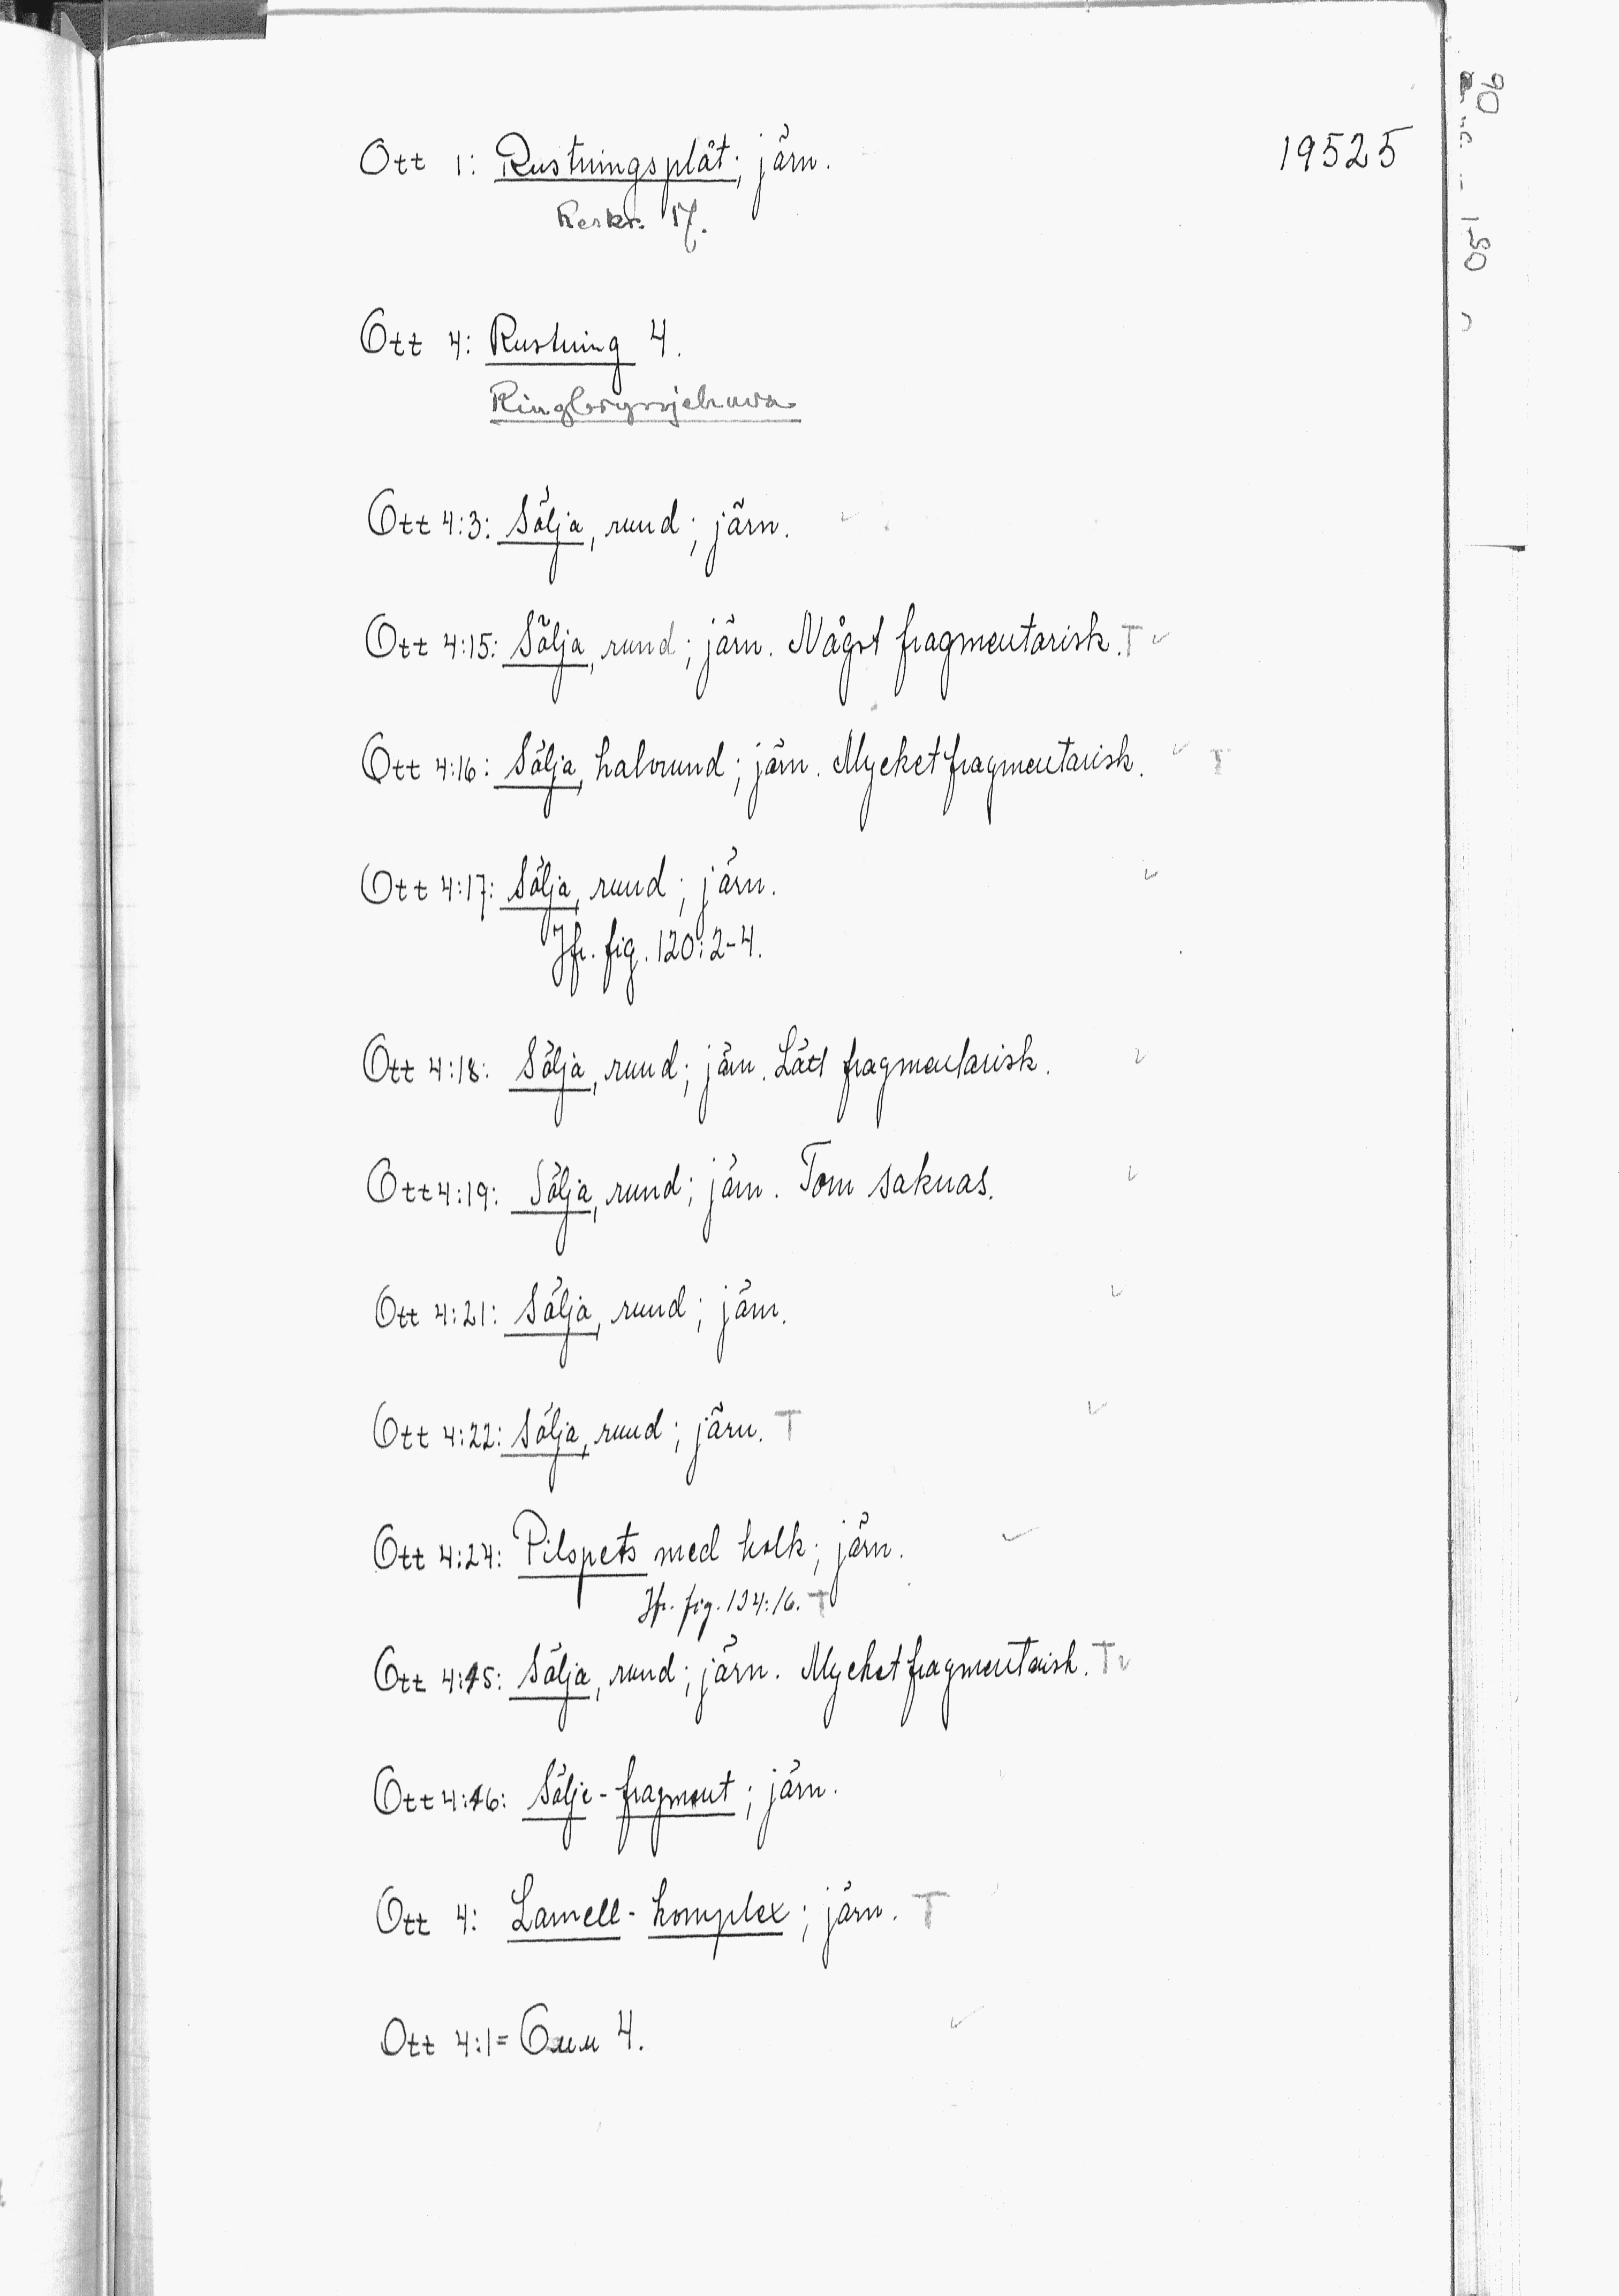 19525
Ott 1: Rustningsplåt; järn.
Beskr. 17.
Ott 4: Rustning 4.
Ringbrynjehuva
Ott 4:3: Sölja, rund; järn.
Ott 4:15: Sölja, rund; järn. Något fragmentarisk. T
Ott 4:16: Sölja, halvrund; järn. Mycket fragmentarisk. T
Ott 4:17: Sölja, rund; järn.
Jfr. fig. 120:2-4.
Ott 4:18: Sölja, rund; järn. Lätt fragmentarisk.
Ott 4:19: Sölja, rund; järn. Torn saknas.
Ott 4:21: Sölja, rund; järn.
Ott 4:22: Sölja, rund; järn. T
Ott 4:24: Pilspets med holk; järn.
Jfr. fig. 134:16. T
Ott 4:45: Sölja, rund; järn. Mycket fragmentarisk. T
Ott 4:46: Sölje-fragment; järn.
Ott 4: Lamell-komplex; järn. T
Ott 4:1 = Omm 4.